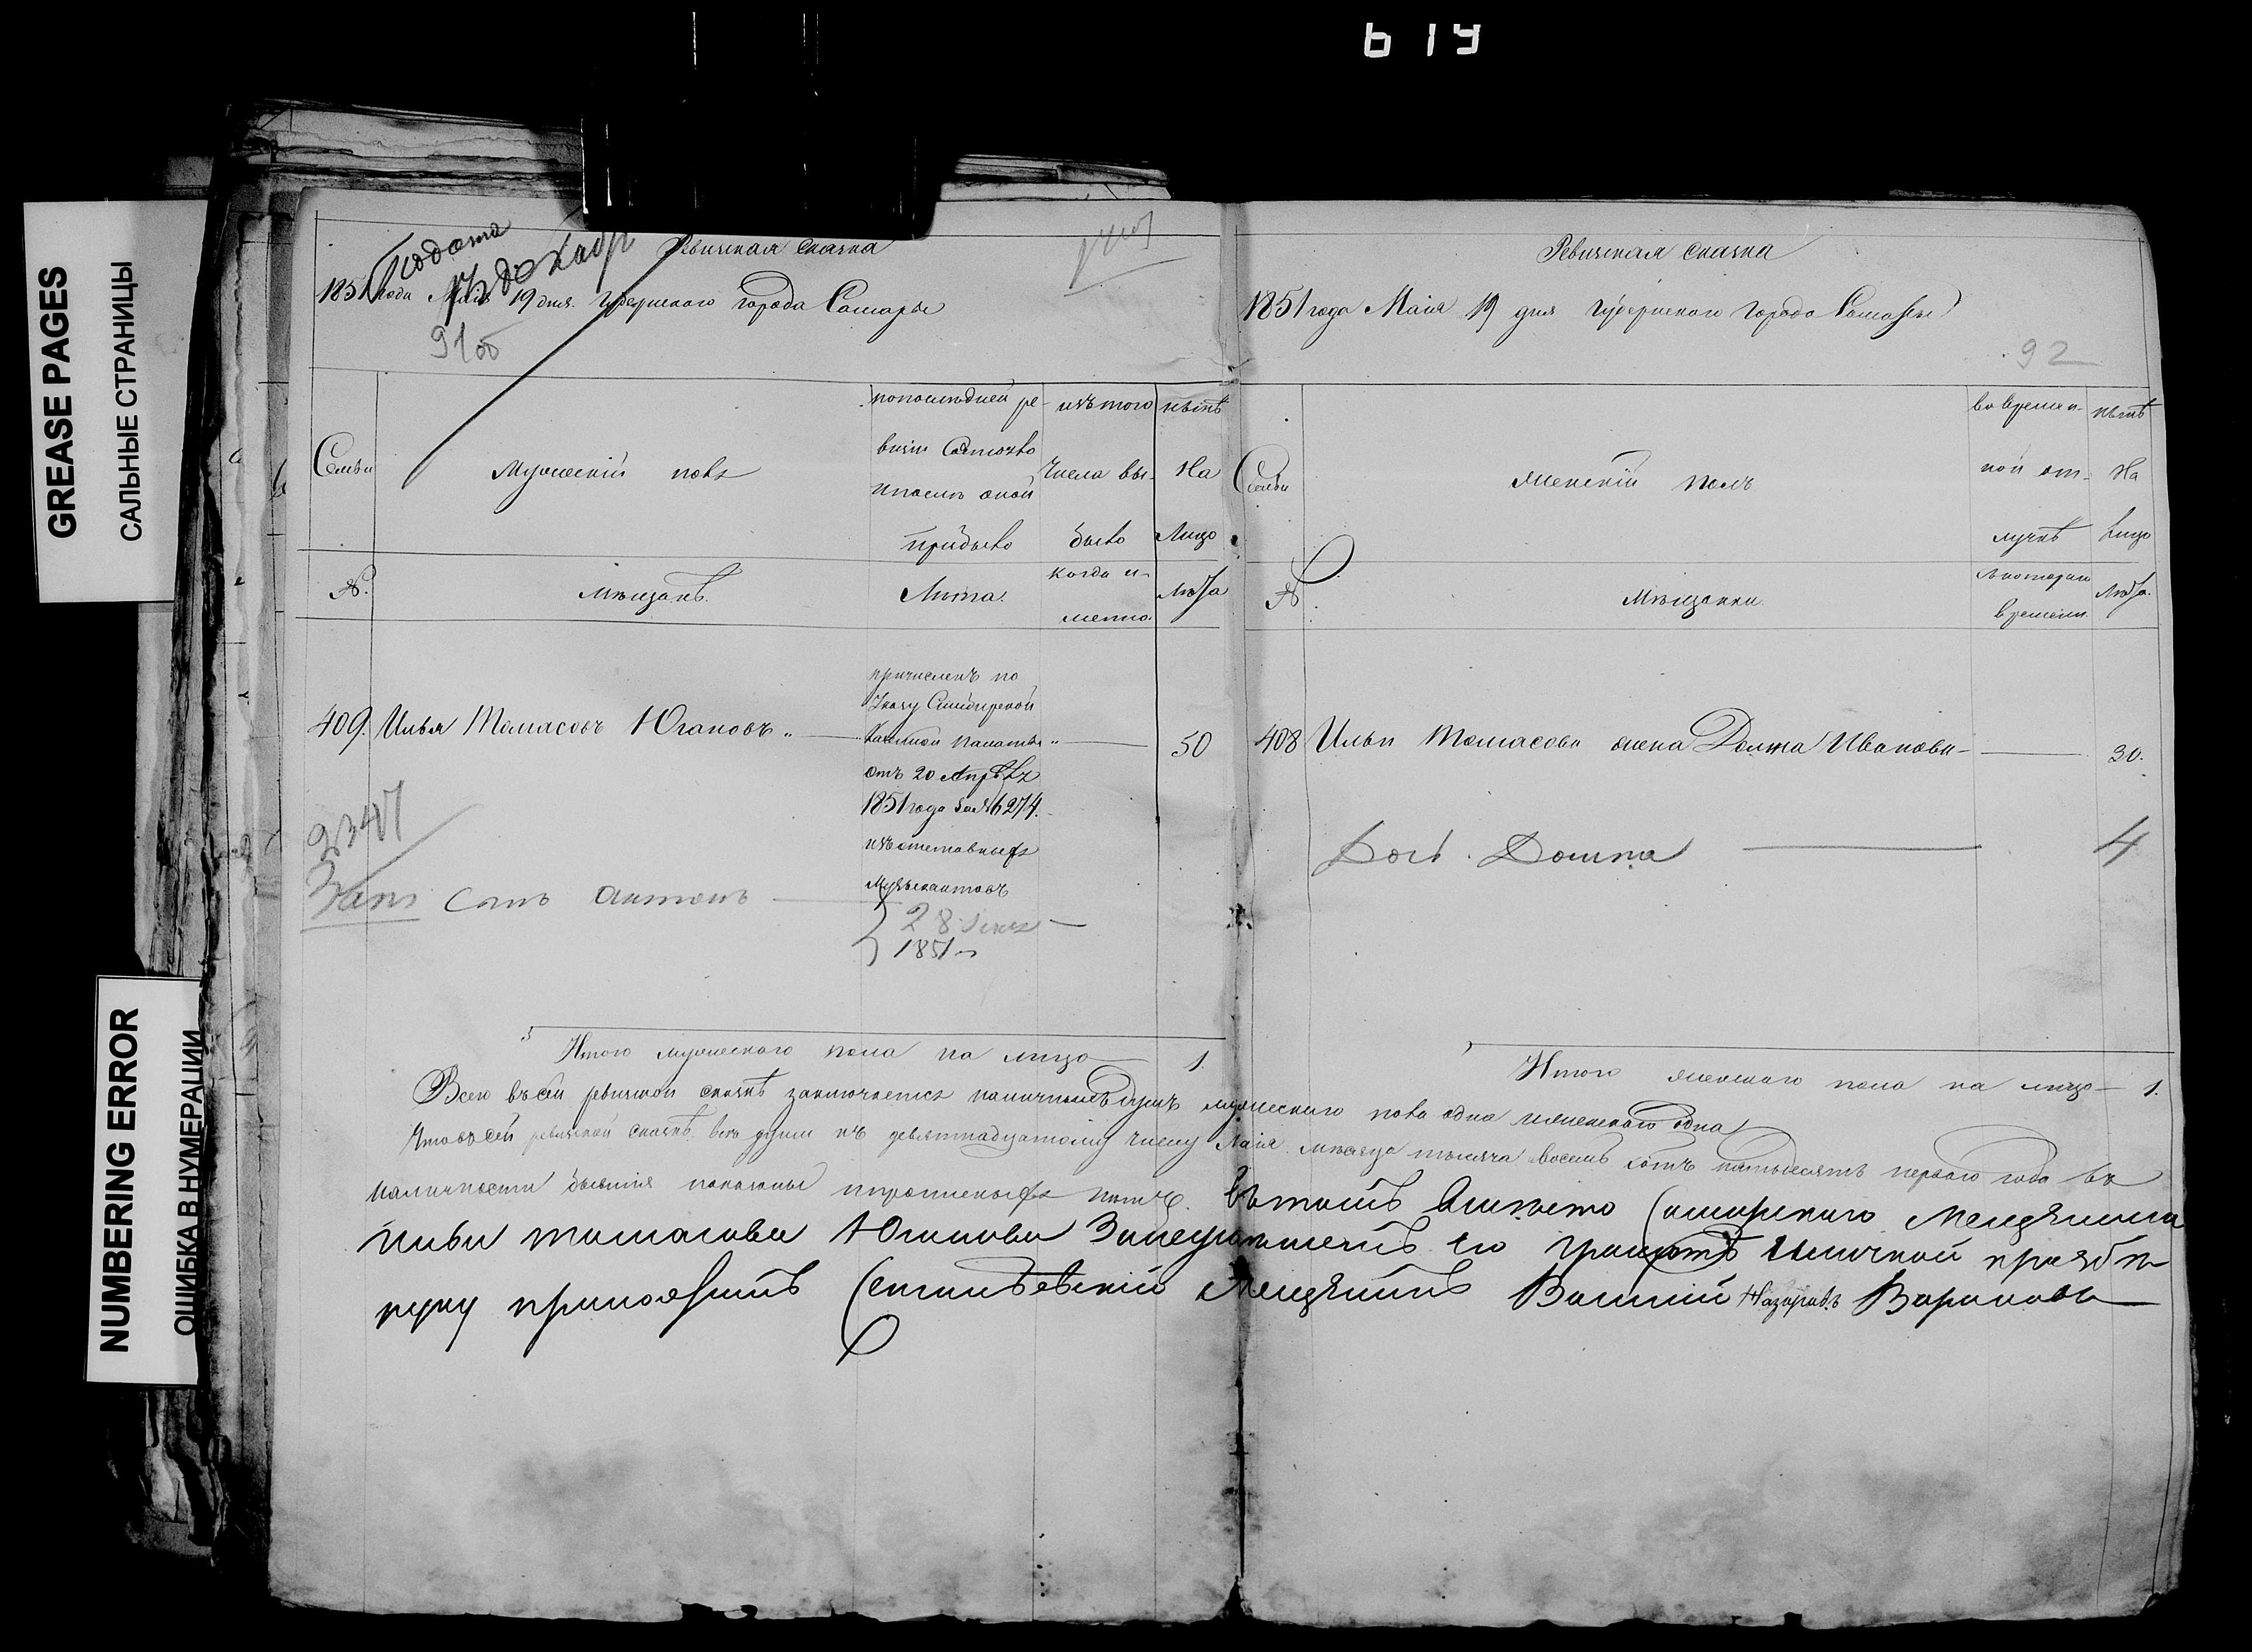 619
GREASE PAGES
САЛЬНЫЕ СТРАНИЦЫ
NUMBERING ERROR
ОШИБКА В НУМЕРАЦИИ
Подана
Ревизская сказка
1851 года Маія 19 дня. Губернского города Самары
91об
Семьи
Мужескій полъ
по последней ре-
визіи состояло
и после оной
прибыло
изъ того
числа вы-
было
ныне
на
лицо
№.
Мещанъ.
Лета.
когда и-
менно
лета
409. Илья Томасовъ Югановъ
причисленъ по
Указу Симбирской
Казенной Палаты
отъ 20 Апреля
1851 года за № 6274.
изъ отставныхъ
Музыкантовъ
50
9347
сынъ Антонъ
28
1851
Итого мужеского пола на лицо 1.
Ревизская сказка
1851 года Маія 19 дня Губернского города Самары
92
Семьи
Женскій полъ
во времен-
ной от-
лучке
ныне
на
лицо
№.
Мещанки.
съ котораго
времени.
лета.
408 Ильи Томасова жена Домна Иванова 30.
Дочь Домна 4
Итого женского пола на лицо 1.
Всего въ сей ревизской сказке заключается наличныхъ душъ мужеского пола одна и женского одна
Что въ сей ревизской сказке все души къ девятнадцатому числу Маія месяца тысяча восемь сотъ пятьдесятъ первого года въ
наличности бывшія показаны и прописныхъ нетъ. въ томъ вместо Самарского мещанина
Ильи томасова Юганова За неграмотствъ его
руку приложилъ мещанинъ Василій Назаровъ Вороновъ